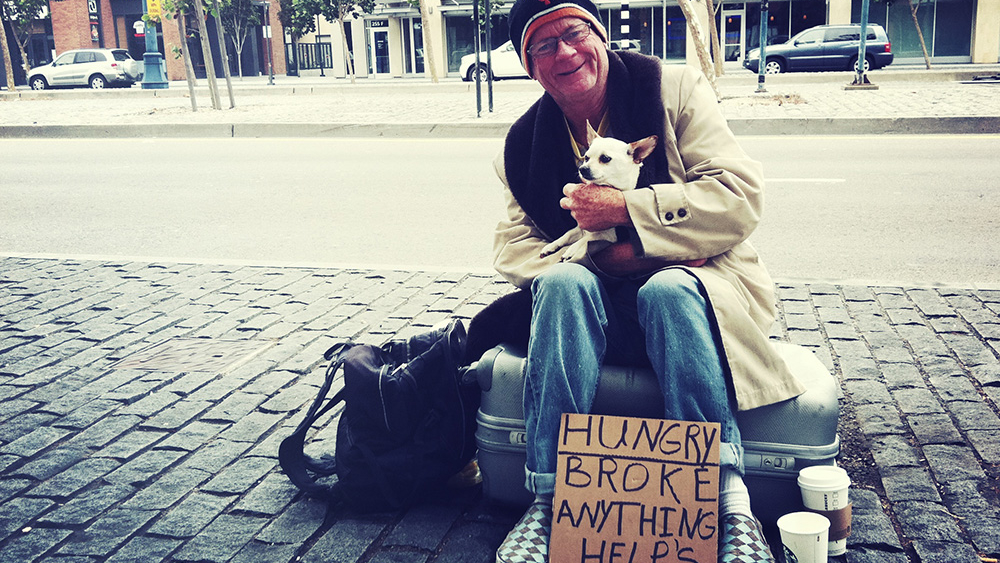 255
HUNGRY
BROKE
ANYTHING
HELP'S